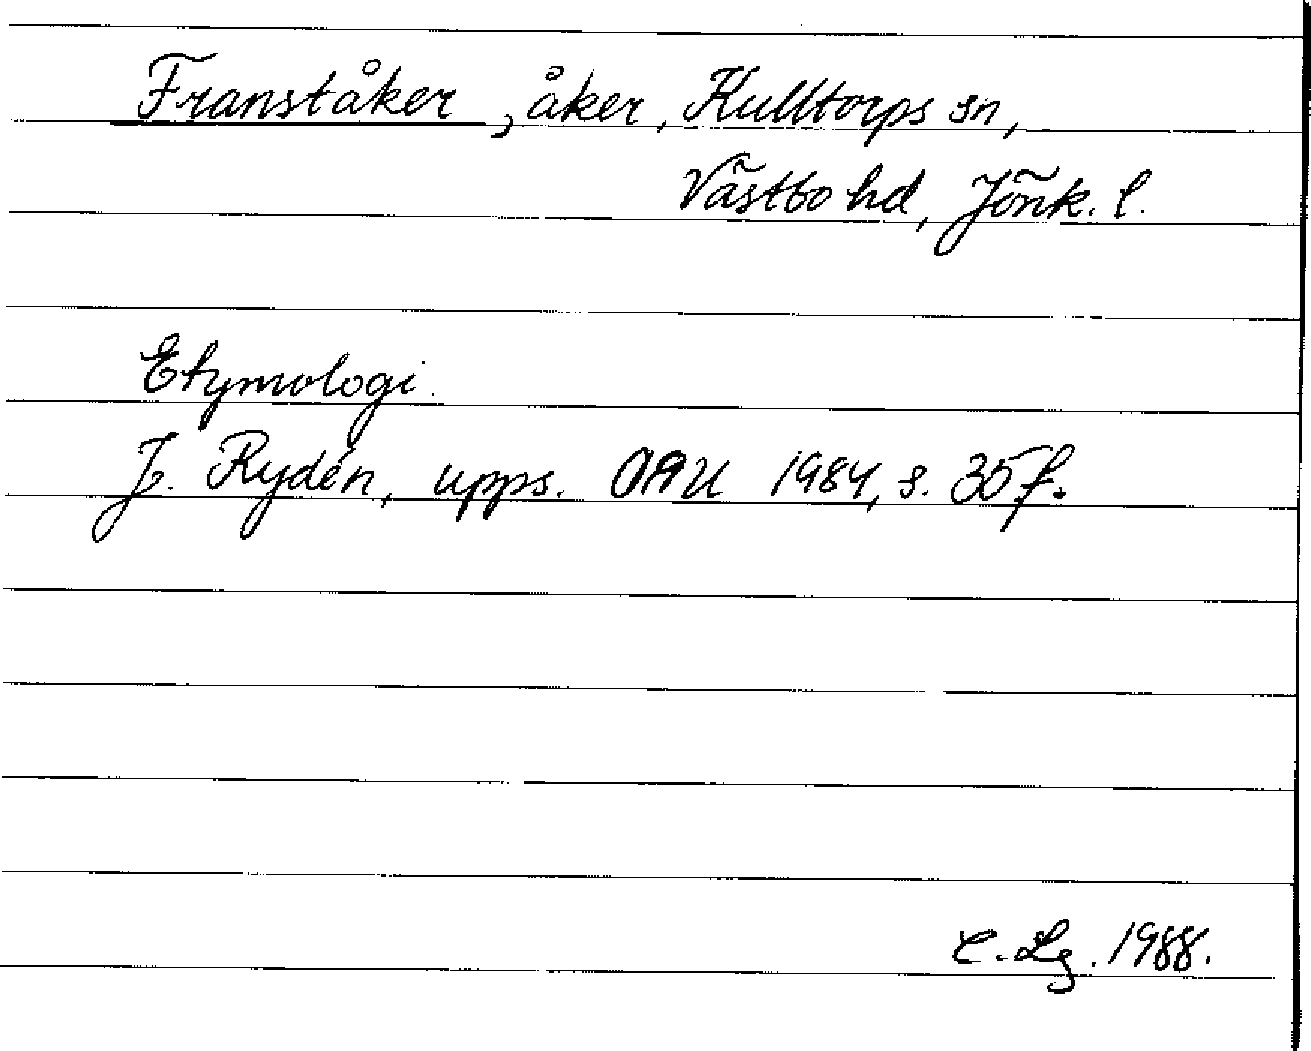 Franståker, åker, Kulltorps sn,
Västbo hd, Jönk. l.
Etymologi.
J. Rydén, upps. OAU 1984, s. 35 f.
C. Lg. 1988.